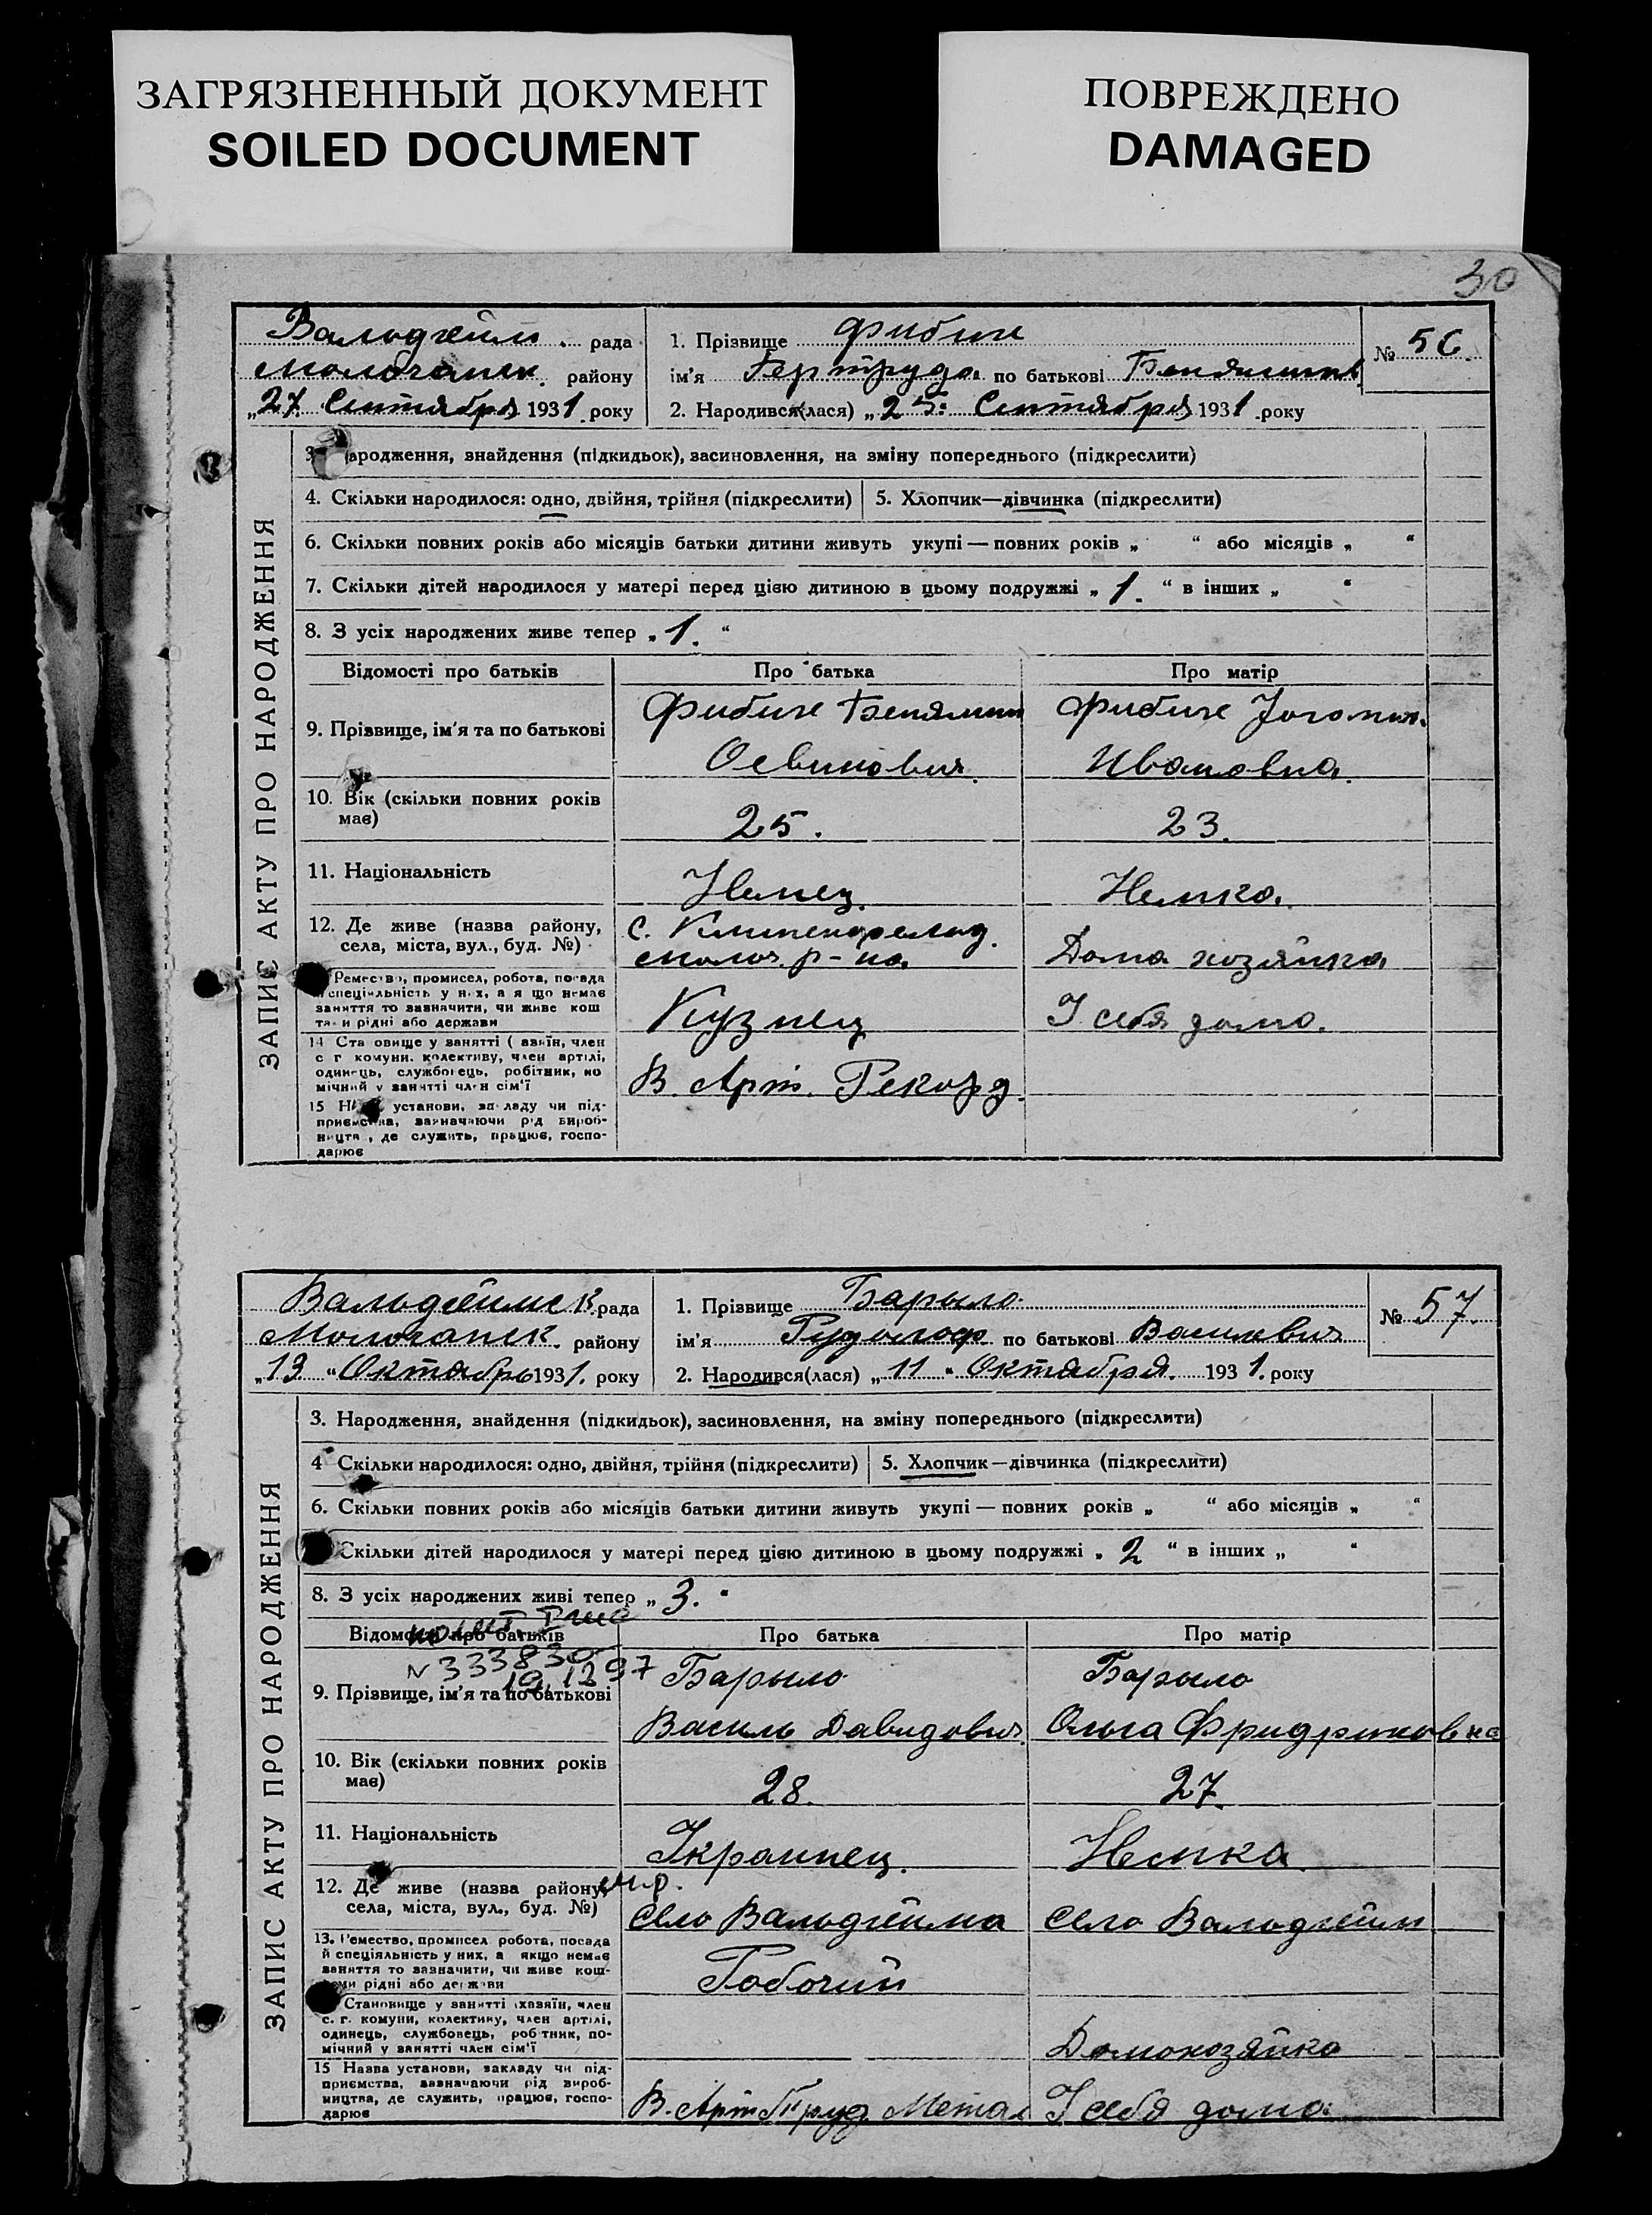 ЗАГРЯЗНЕННЫЙ ДОКУМЕНТ
SOILED DOCUMENT
ПОВРЕЖДЕНО
DAMAGED
30
Вальдгейм. рада
Молочанск. району
„27 Сентября 1931. року
1. Прізвище
ім'я Гертруда по батькові
2. Народився(лася) „25. Сентября 1931. року
№ 56.
ЗАПИС АКТУ ПРО НАРОДЖЕННЯ
ародження, знайдення (підкидьок), засиновлення, на зміну попереднього (підкреслити)
4. Скільки народилося: одно, двійня, трійня (підкреслити)
5. Хлопчик—дівчинка (підкреслити)
6. Скільки повних років або місяців батьки дитини живуть укупі — повних років „ “ або місяців „ “
7. Скільки дітей народилося у матері перед цією дитиною в цьому подружжі „ 1. “ в інших „ “
8. З усіх народжених живе тепер „ 1. “
Відомості про батьків
Про батька
Про матір
9. Прізвище, ім'я та по батькові
Ивановна.
10. Вік (скільки повних років має)
25.
23.
11. Національність
Немец.
Немка.
12. Де живе (назва району,
села, міста, вул., буд. №)
с.
Молоч. р-на
Дома хозяйка
Ремество, промисел, робота, посада
спеціяльність у них, а я що немає
заняття то зазначити, чи живе кош
та и рідні або держави
Кузнец
У себя дома.
14 Ста овище у занятті ( азяїн, член
с г комуни. колективу, член артілі,
одинець, службовець, робітник, по
мічний у занятті член сім'ї
В. Арт. Рекорд.
15 установи, закладу чи під-
приємства, зазначаючи рід вироб-
ництва, де служить, працює, госпо-
дарює
Вальдгеймск. рада
Молочанск. району
„13 “ Октябрь 1931. року
1. Прізвище Барыло
ім'я Рудольф по батькові Василевич
2. Народився(лася) „11 “ Октября. 1931. року
№ 57.
ЗАПИС АКТУ ПРО НАРОДЖЕННЯ
3. Народження, знайдення (підкидьок), засиновлення, на зміну попереднього (підкреслити)
4 Скільки народилося: одно, двійня, трійня (підкреслити)
5. Хлопчик—дівчинка (підкреслити)
6. Скільки повних років або місяців батьки дитини живуть укупі — повних років „ “ або місяців „ “
Скільки дітей народилося у матері перед цією дитиною в цьому подружжі „ 2 “ в інших „ “
8. З усіх народжених живі тепер „ 3. “
Відомості про батьків
Про батька
Про матір
N 333830
19.12 97
9. Прізвище, ім'я та по батькові
Барыло
Василь Давидович.
Барыло
Ольга Фридриховна
10. Вік (скільки повних років має)
28.
27.
11. Національність
Украинец.
Немка
12. Де живе (назва району,
села, міста, вул., буд. №)
Село Вальдгейма
Село Вальдгейм
13. Ремество, промисел робота, посада
й спеціяльність у них, а якщо немає
заняття то зазначити, чи живе кош-
тами рідні або держави
Рабочий
Становище у занятті (хазяїн, член
с. г. комуни, колективу, член артілі,
одинець, службовець, робітник, по-
мічний у занятті член сім'ї
Домохозяйка
15 Назва установи, закладу чи під-
приємства, зазначаючи рід вироб-
ництва, де служить, працює, госпо-
дарює
В. Арт Труд Метал
У себя дома.